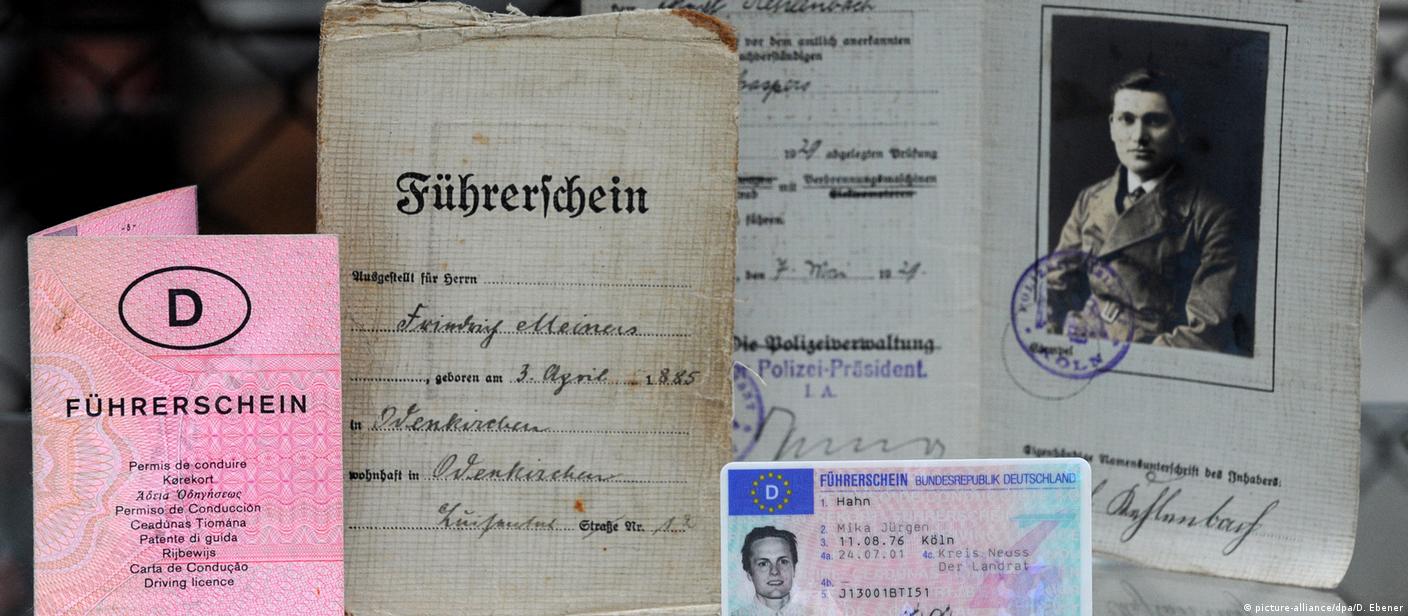 D
FÜHRERSCHEIN
Permis de conduire
Kørekort
Ἄδεια Ὁδηγήσεως
Permiso de Conducción
Ceadúnas Tiomána
Patente di guida
Rijbewijs
Carta de Condução
Driving licence
Führerschein
Ausgestellt für Herrn
Friedrich Meiners
, geboren am 3. April 1885
in Odenkirchen
wohnhaft in Odenkirchen
Straße Nr.
Kehlenbach
vor dem amtlich anerkannten
1929 abgelegten Prüfung
mit Verbrennungsmaschinen
führen.
, den 7. Mai 1929.
Die Polizeiverwaltung
Polizei-Präsident.
I. A.
Stempel
KÖLN
Eigenhändige Namensunterschrift des Inhabers:
Kehlenbach
D
FÜHRERSCHEIN BUNDESREPUBLIK DEUTSCHLAND
1. Hahn
2. Mika Jürgen
3. 11.08.76 Köln
4a. 24.07.01 4c. Kreis Neuss
Der Landrat
4b. —
5. J13001BTI51
© picture-alliance/dpa/D. Ebener